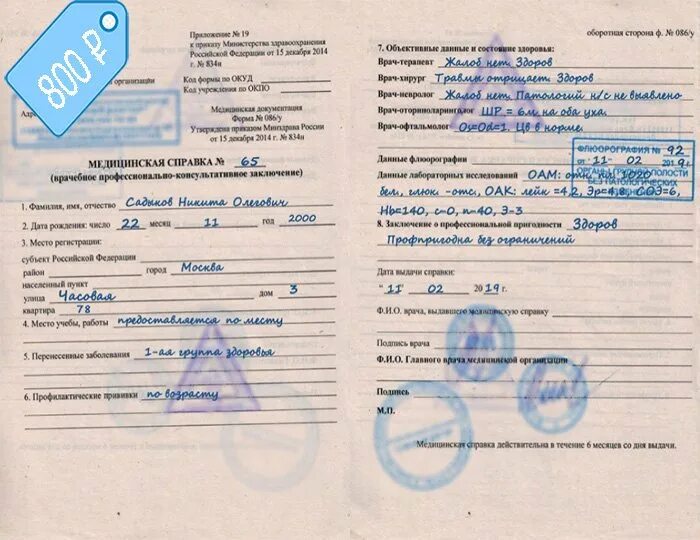 800 ₽
Приложение № 19
к приказу Министерства здравоохранения
Российской Федерации от 15 декабря 2014
г. № 834н
организации
Код формы по ОКУД
Код учреждения по ОКПО
Медицинская документация
Форма № 086/у
Утверждена приказом Минздрава России
от 15 декабря 2014 г. № 834н
МЕДИЦИНСКАЯ СПРАВКА № 65
(врачебное профессионально-консультативное заключение)
1. Фамилия, имя, отчество Садыков Никита Олегович
2. Дата рождения: число 22 месяц 11 год 2000
3. Место регистрации:
субъект Российской Федерации
район город Москва
населенный пункт
улица Часовая дом 3
квартира 78
4. Место учебы, работы предоставляется по месту
5. Перенесенные заболевания 1-ая группа здоровья
6. Профилактические прививки по возрасту
оборотная сторона ф. № 086/у
7. Объективные данные и состояние здоровья:
Врач-терапевт Жалоб нет. Здоров
Врач-хирург Травмы отрицает. Здоров
Врач-невролог Жалоб нет. Патологий н/с не выявлено
Врач-оториноларинголог ШР = 6м, на оба уха.
Врач-офтальмолог Os=Od=1. Цв в норме.
ФЛЮОРОГРАФИЯ № 92
от 11- 02 2019г.
ОРГАНЫ ГРУДНОЙ ПОЛОСТИ
БЕЗ ПАТОЛОГИЧЕСКИХ
Данные флюорографии
Данные лабораторных исследований ОАМ: отн. пл 1020
бел, глюк -отс, ОАК: лейк =4,2, Эр=4,8, СОЭ=6,
Hb=140, с-0, п-40, Э-3
8. Заключение о профессиональной пригодности Здоров
Профпригодна без ограничений
Дата выдачи справки:
"11" 02 2019 г.
Ф.И.О. врача, выдавшего медицинскую справку
Подпись врача
Ф.И.О. Главного врача медицинской организации
Подпись
М.П.
Медицинская справка действительна в течение 6 месяцев со дня выдачи.